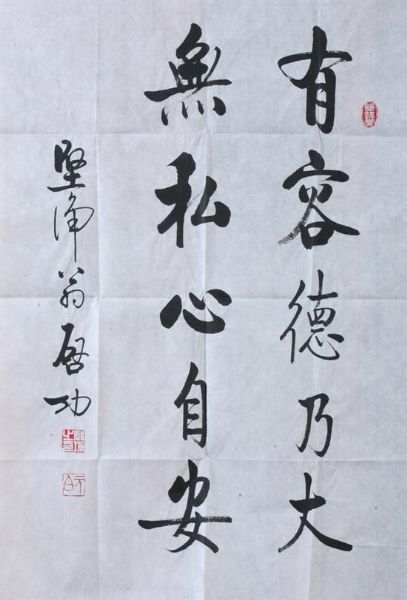 有容德乃大
無私心自安
堅净翁啓功